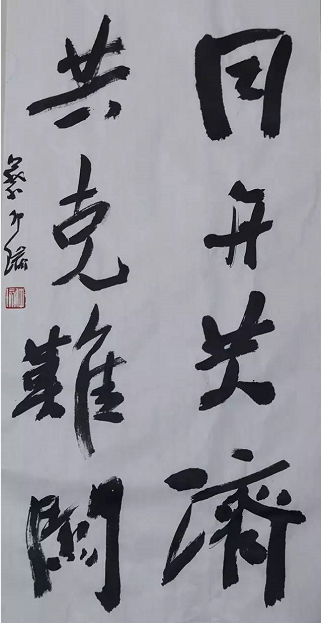 同舟共濟
共克難關